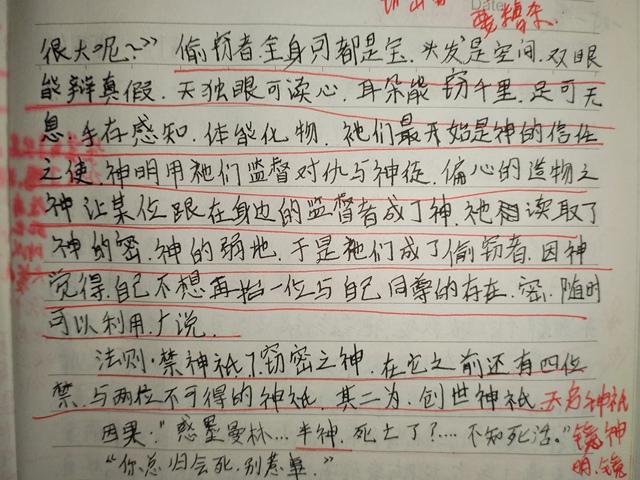 要替宗.
很大呢?>> 偷窃者全身可都是宝.头发是空间.双眼
能辩真假.天独眼可读心.耳朵能窃千里.足可无
息.手存感知.体能化物.祂们最开始是神的信任
之使.神明用祂们监督对仇与神徒.偏心的造物之
神让某位跟在身边的监督者成了神.祂相读取了
神的密.神的弱地.于是祂们成了偷窃者.因神
觉得自己不想再抬一位与自己同尊的存在.密.随时
可以利用.广说.
法则·禁神祇了窃密之神.在它之前还有四位
禁.与两位不可得的神祇.其二为.创世神祇.无名神祇
因果:"惑墨曼林...半神.死亡了?....不知死活."镜神
"你总归会死.别惹事." 明.镜